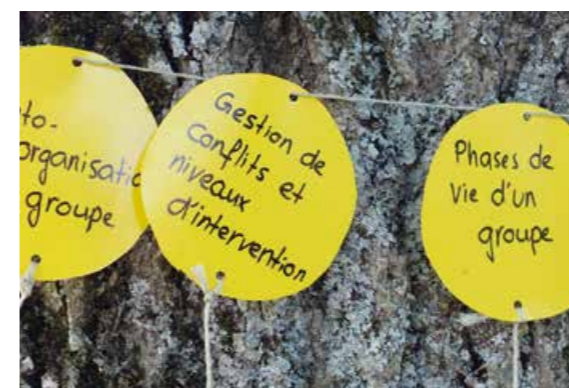 to-
organisatio
groupe
Gestion de
Conflits et
niveaux
d'intervention
Phases de
Vie d'un
groupe